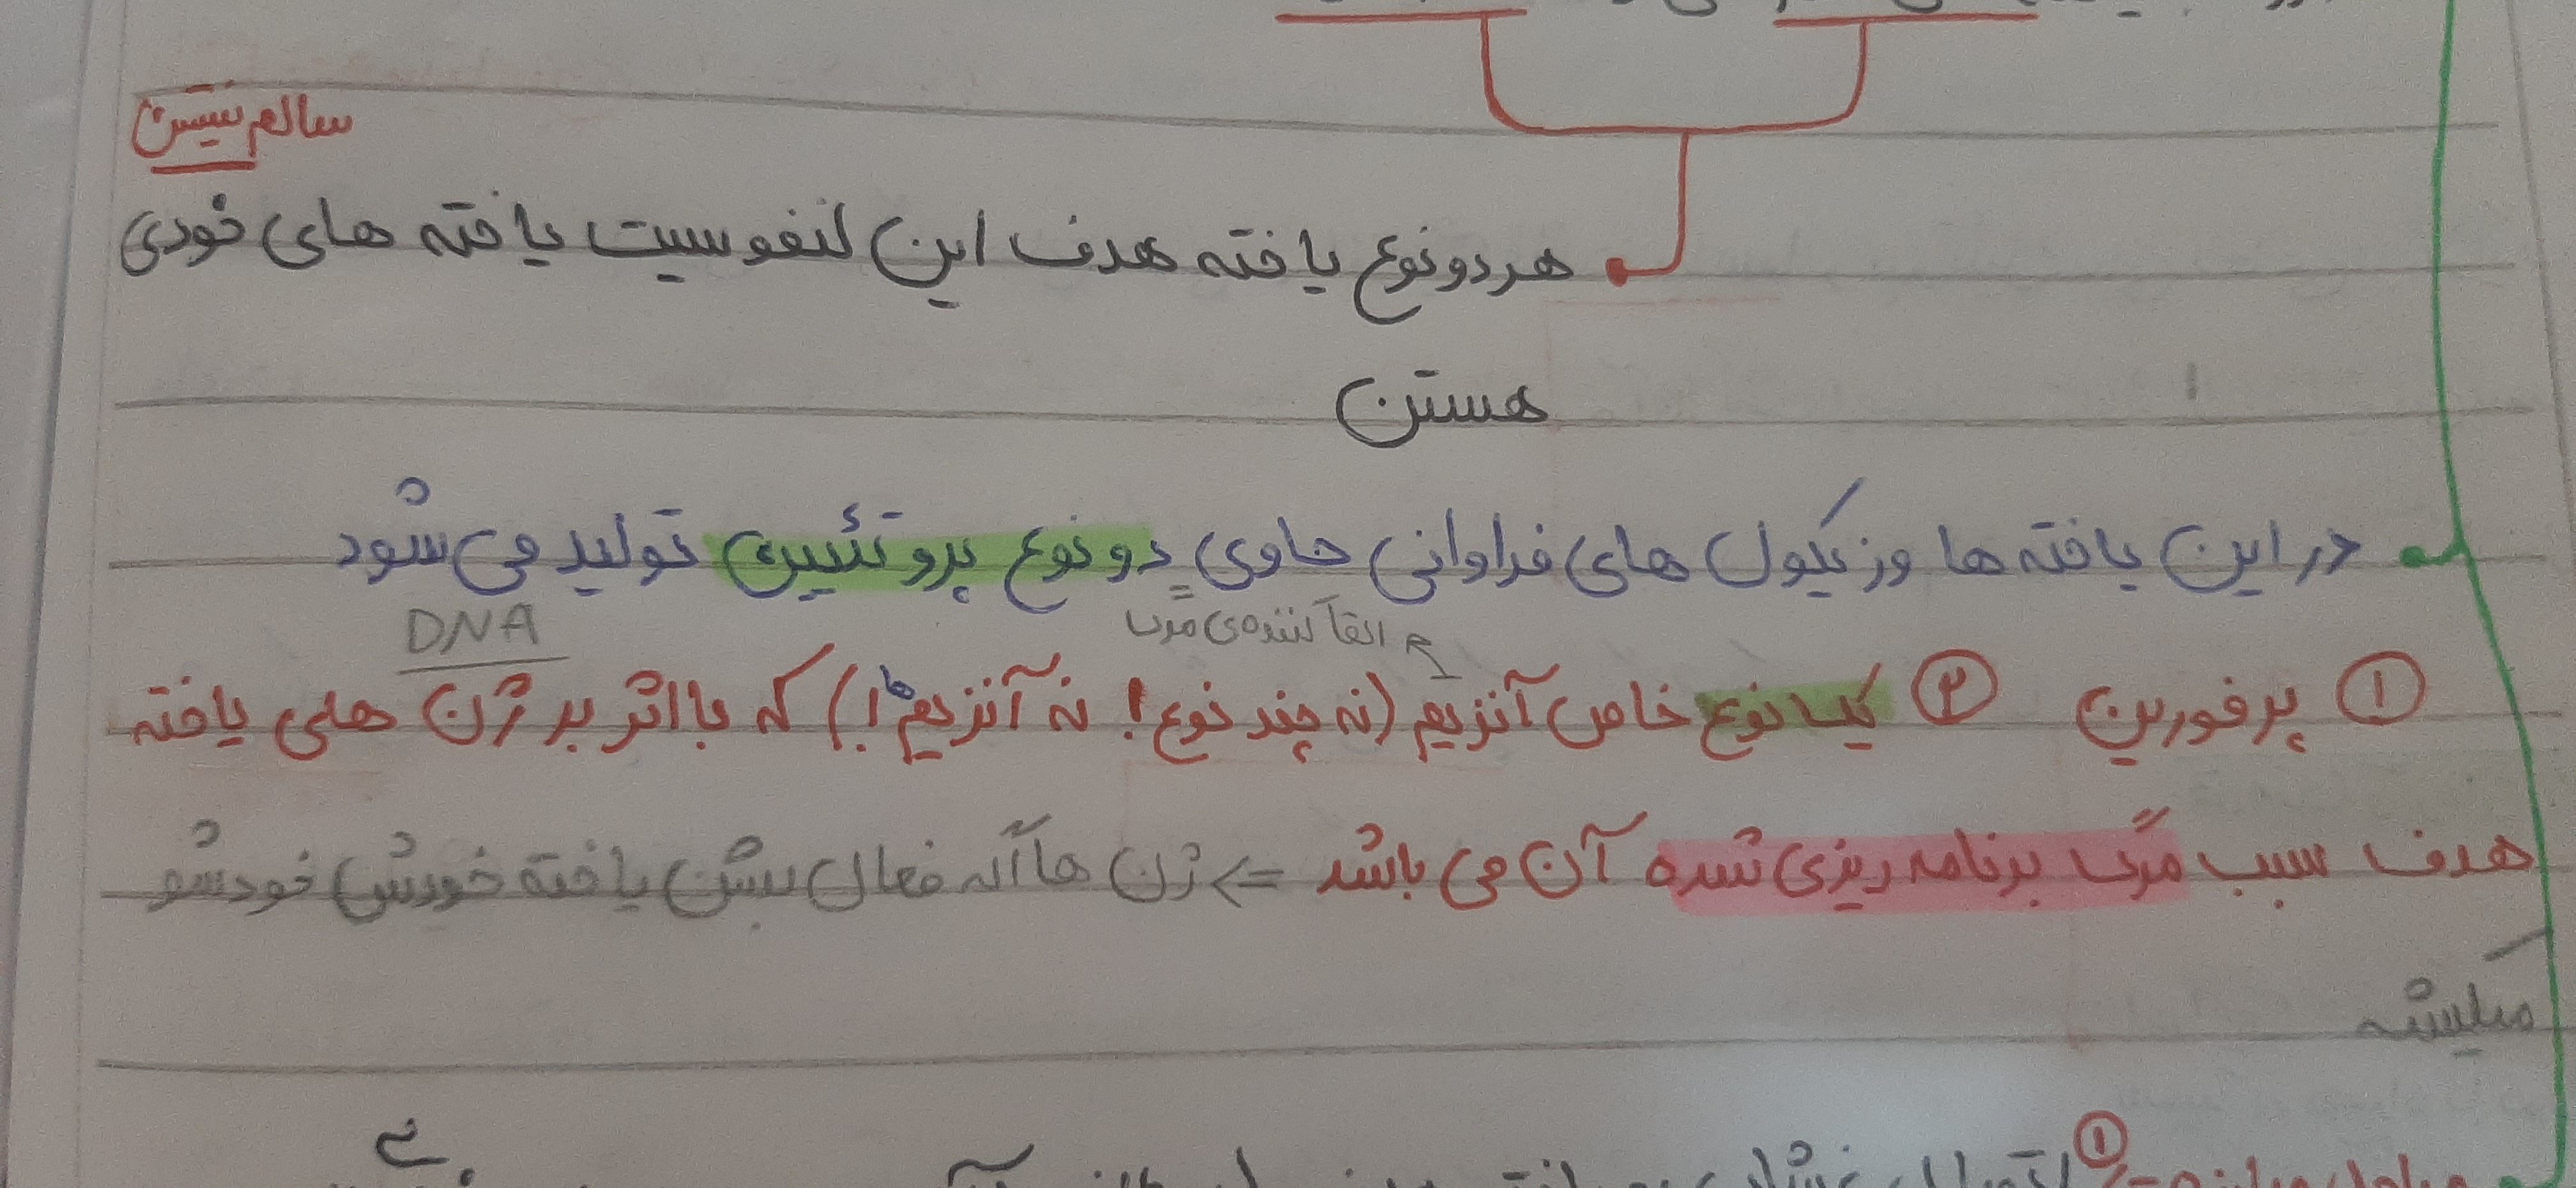 سالم نیستن
هر دو نوع یاخته هدف این لنفوسیت یاخته های خودی
هستن
در این یاخته ها وزیکول های فراوانی حاوی دو نوع پروتئین تولید می شود
القا کننده ی مرگ DNA
① پرفورین ② یک نوع خاص آنزیم (نه چند نوع! نه آنزیم ها!) که با اثر بر ژن های یاخته
هدف سبب مرگ برنامه ریزی شده آن می باشد => ژن ها اگه فعال بشن یاخته خودش خودشو
میکشه
①